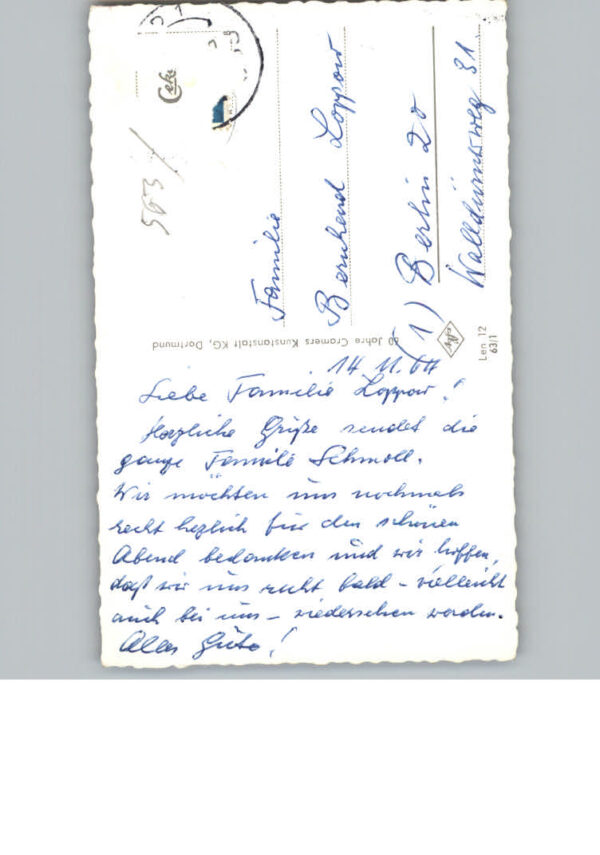 14.11.64
Liebe Familie Loppow!
Herzliche Grüße sendet die
ganze Familie Schmoll.
Wir möchten uns nochmals
recht herzlich für den schönen
Abend bedanken und wir hoffen,
daß wir uns recht bald – vielleicht
auch bei uns – wiedersehen werden.
Alles Gute!
Familie
Bernhard Loppow
(1) Berlin 20
Walldürnerweg 31
60 Jahre Cramers Kunstanstalt KG, Dortmund
Len 12
63/1
Ceka
563/